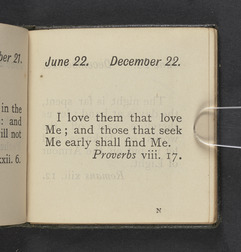 ber 21.
in the
: and
ill not
xxii. 6.
June 22. December 22.
I love them that love
Me; and those that seek
Me early shall find Me.
Proverbs viii. 17.
N